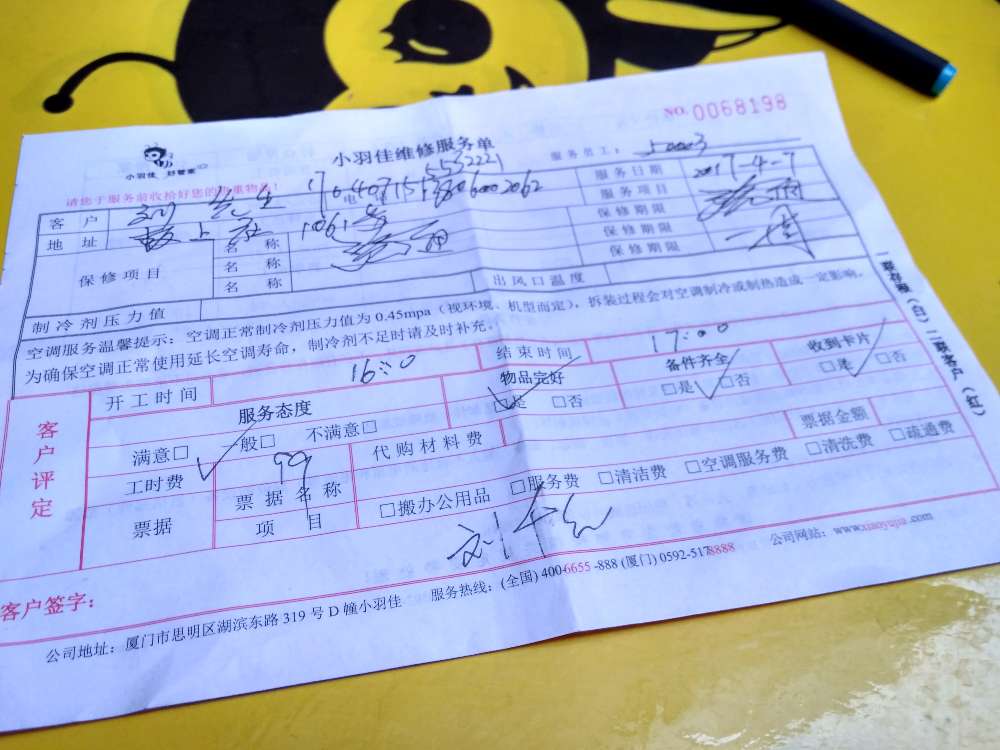 NO. 0068198
小羽佳 好管家
小羽佳维修服务单
服务员工: J0003
请您于服务前收拾好您的贵重物品!
553221
170407151
客户 刘先生 电话 18060002062 服务日期 2017-4-7
地址 坂上社 1061号 服务项目
保修项目 名称 保修期限 一周
名称 保修期限
名称 保修期限
制冷剂压力值 出风口温度
空调服务温馨提示: 空调正常制冷剂压力值为 0.45mpa (视环境、机型而定), 拆装过程会对空调制冷或制热造成一定影响,
为确保空调正常使用延长空调寿命, 制冷剂不足时请及时补充.
客户评定
开工时间 16:00 结束时间 17:00
服务态度 物品完好 备件齐全 收到卡片
满意□ 一般□ 不满意□ □是 □否 □是 □否 □是 □否
工时费 99 代购材料费 票据金额
票据 票据名称 □搬办公用品 □服务费 □清洁费 □空调服务费 □清洗费 □疏通费
项目
客户签字:
公司地址: 厦门市思明区湖滨东路 319 号 D 幢小羽佳 服务热线: (全国) 400-6655-888 (厦门) 0592-5178888 公司网站: www.xiaoyujia.com
一联存根 (白) 二联客户 (红)